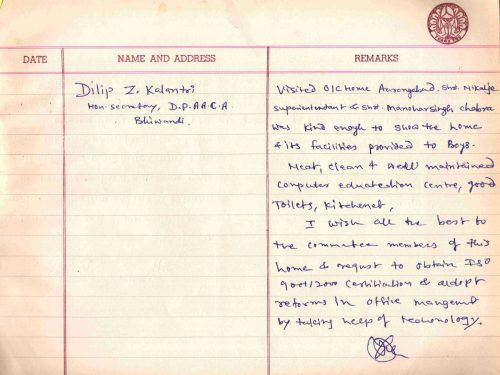 DATE
NAME AND ADDRESS
REMARKS
Dilip Z. Kalantri
Hon. Secretary, D.P.A.A.C.A
Bhiwandi.
Visited O/C Home Aurangabad. Shri. Nikalje
superientendant & Shri. Manoharsingh chabra
was kind enogh to show the home
& its facilities provided to Boys.
Neat, clean & well maintained
computer educateshion centre, good
Toilets, Kitchenet,
I wish all the best to
the committee members of this
home & requst to obtain ISO
9001/2000 & adopt
reforms in office mangemt
by taking help of technology.